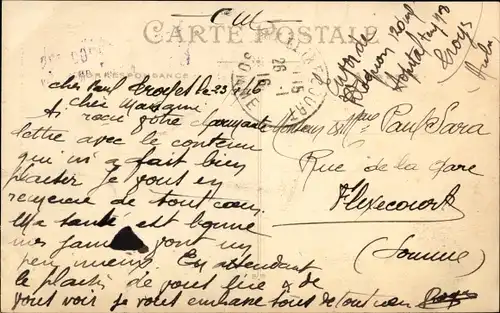 C M
CARTE POSTALE
CORRESPONDANCE
FLIXECOURT
SOMME
15
26 - 1
16
Envoi de
Hopital
Troyes
Aube
Cher Paul Troyes le 23
Chère
J'ai reçu votre charmante
lettre avec le contenu
qui m'a fait bien
plaisir je vous en
remercie de tout cœur.
Ma santé est bonne
mes vont un
peu mieux. En attendant
le plaisir de vous lire & de
vous voir je vous embrasse tous de tout cœur
Monsieur & Mme Paul Sara
Rue de la Gare
Flixecourt
(Somme)